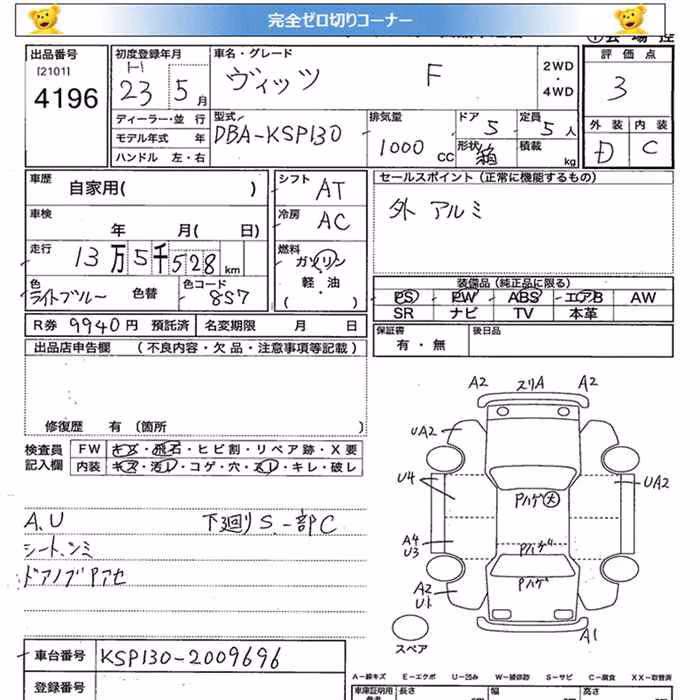 完全ゼロ切りコーナー
出品番号
[2101]
4196
初度登録年月
H
23 5月
ディーラー・並 行
モデル年式 年
ハンドル 左・右
車名・グレード
ヴィッツ F
2WD
・
4WD
型式
DBA-KSP130
排気量
1000 CC
ドア 5
定員 5人
形状 箱
積載 kg
評価点
3
外装 内装
D C
車歴 自家用( )
車検 年 月( 日)
走行 13万5千528km
色 ライトブルー 色替 色コード 8S7
シフト AT
冷房 AC
燃料
ガソリン
軽・油
( )
セールスポイント(正常に機能するもの)
外 アルミ
装備品(純正品に限る)
PS PW ABS エアB AW
SR ナビ TV 本革
保証書 有・無 後日品
R券 9940円 預託済 名変期限 月 日
出品店申告欄 (不良内容・欠品・注意事項等記載)
修復歴 有〔箇所 〕
検査員 FW キズ・飛石・ヒビ割・リペア跡・X要
記入欄 内装 キズ・汚レ・コゲ・穴・スレ・キレ・破レ
A、U 下廻りS 一部C
シートシミ
ドアノブPアセ
車台番号 KSP130-2009696
登録番号
A2 スリA A2
UA2
U4 UA2
Pハゲ大
A4
U3
Pハゲ
Pハゲ
A2
U1
A1
スペア
A-線キズ E-エクボ U-凹み W-補修跡 S-サビ C-腐食 XX-取替済
長さ 幅 高さ